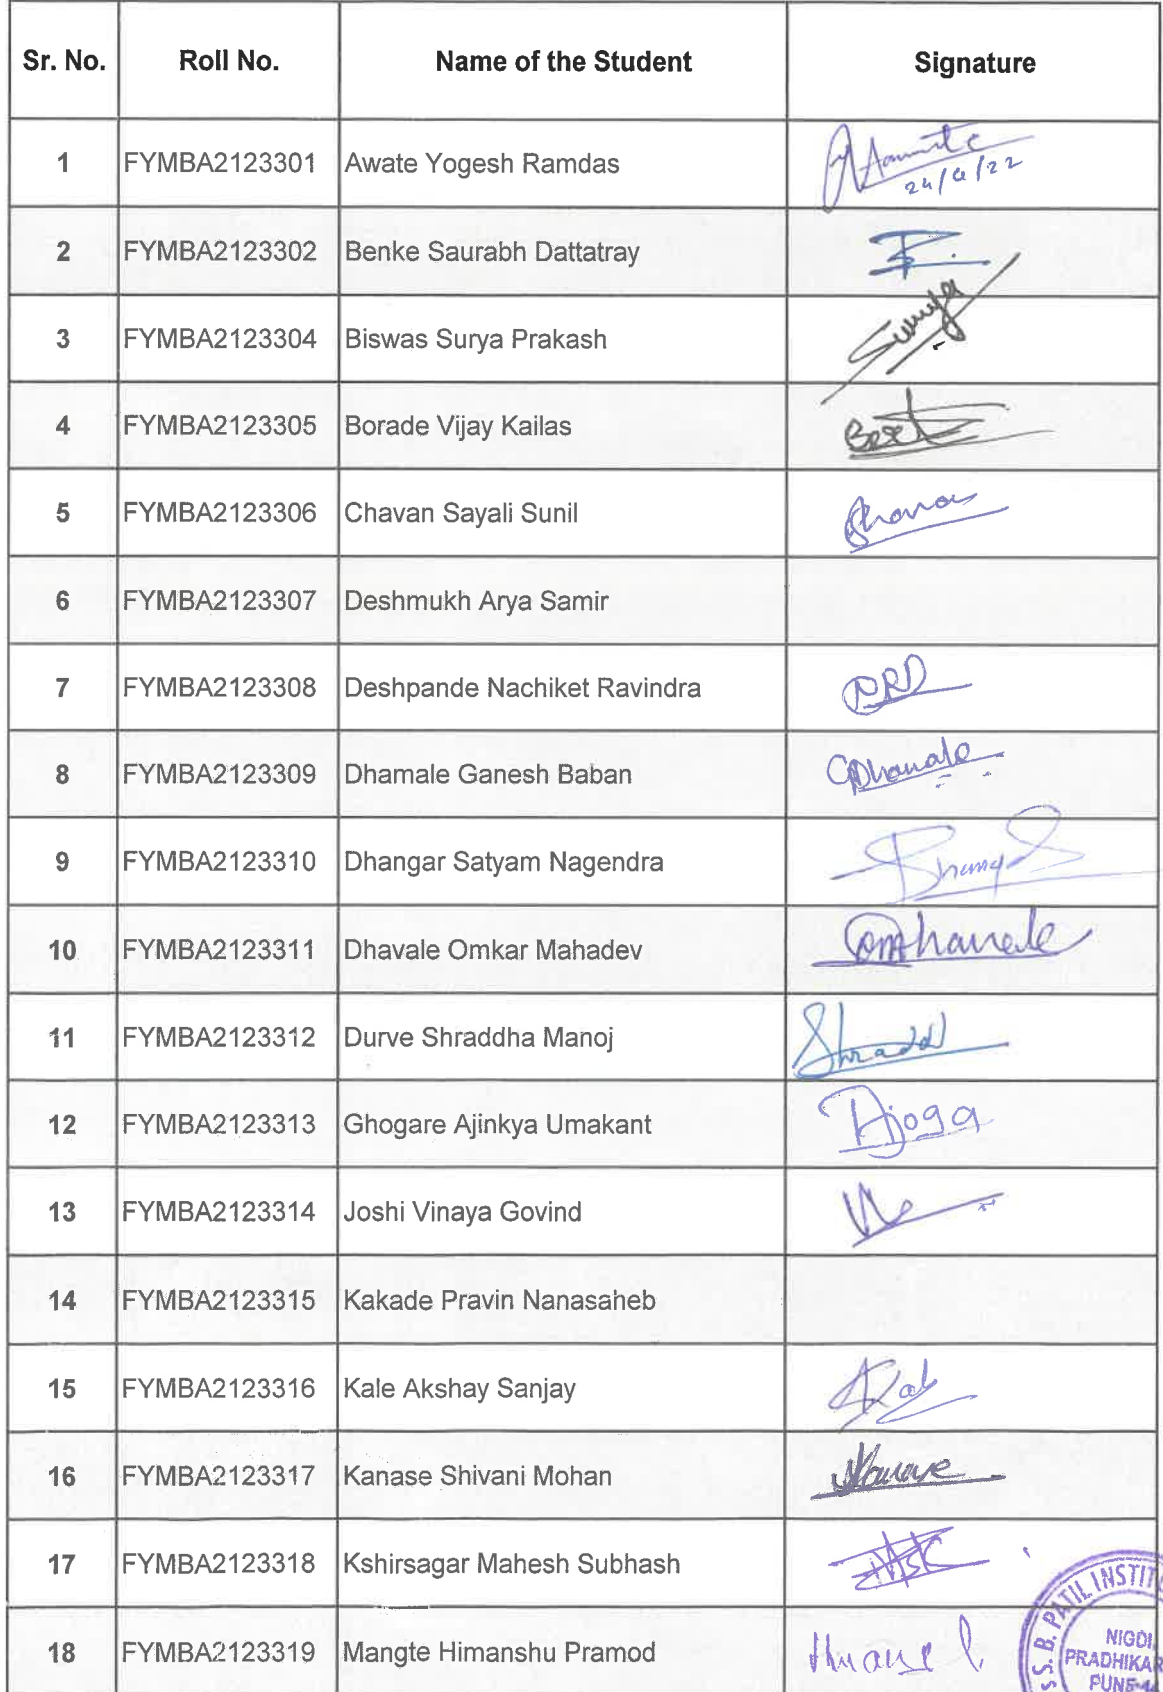 Sr. No. Roll No. Name of the Student Signature
1 FYMBA2123301 Awate Yogesh Ramdas
24/4/22
2 FYMBA2123302 Benke Saurabh Dattatray
3 FYMBA2123304 Biswas Surya Prakash Surya
4 FYMBA2123305 Borade Vijay Kailas
5 FYMBA2123306 Chavan Sayali Sunil
6 FYMBA2123307 Deshmukh Arya Samir
7 FYMBA2123308 Deshpande Nachiket Ravindra NRD
8 FYMBA2123309 Dhamale Ganesh Baban
9 FYMBA2123310 Dhangar Satyam Nagendra
10 FYMBA2123311 Dhavale Omkar Mahadev
11 FYMBA2123312 Durve Shraddha Manoj
12 FYMBA2123313 Ghogare Ajinkya Umakant
13 FYMBA2123314 Joshi Vinaya Govind
14 FYMBA2123315 Kakade Pravin Nanasaheb
15 FYMBA2123316 Kale Akshay Sanjay
16 FYMBA2123317 Kanase Shivani Mohan
17 FYMBA2123318 Kshirsagar Mahesh Subhash
18 FYMBA2123319 Mangte Himanshu Pramod
S. B. PATIL INSTIT
NIGDI
PRADHIKAR
PUNE-44